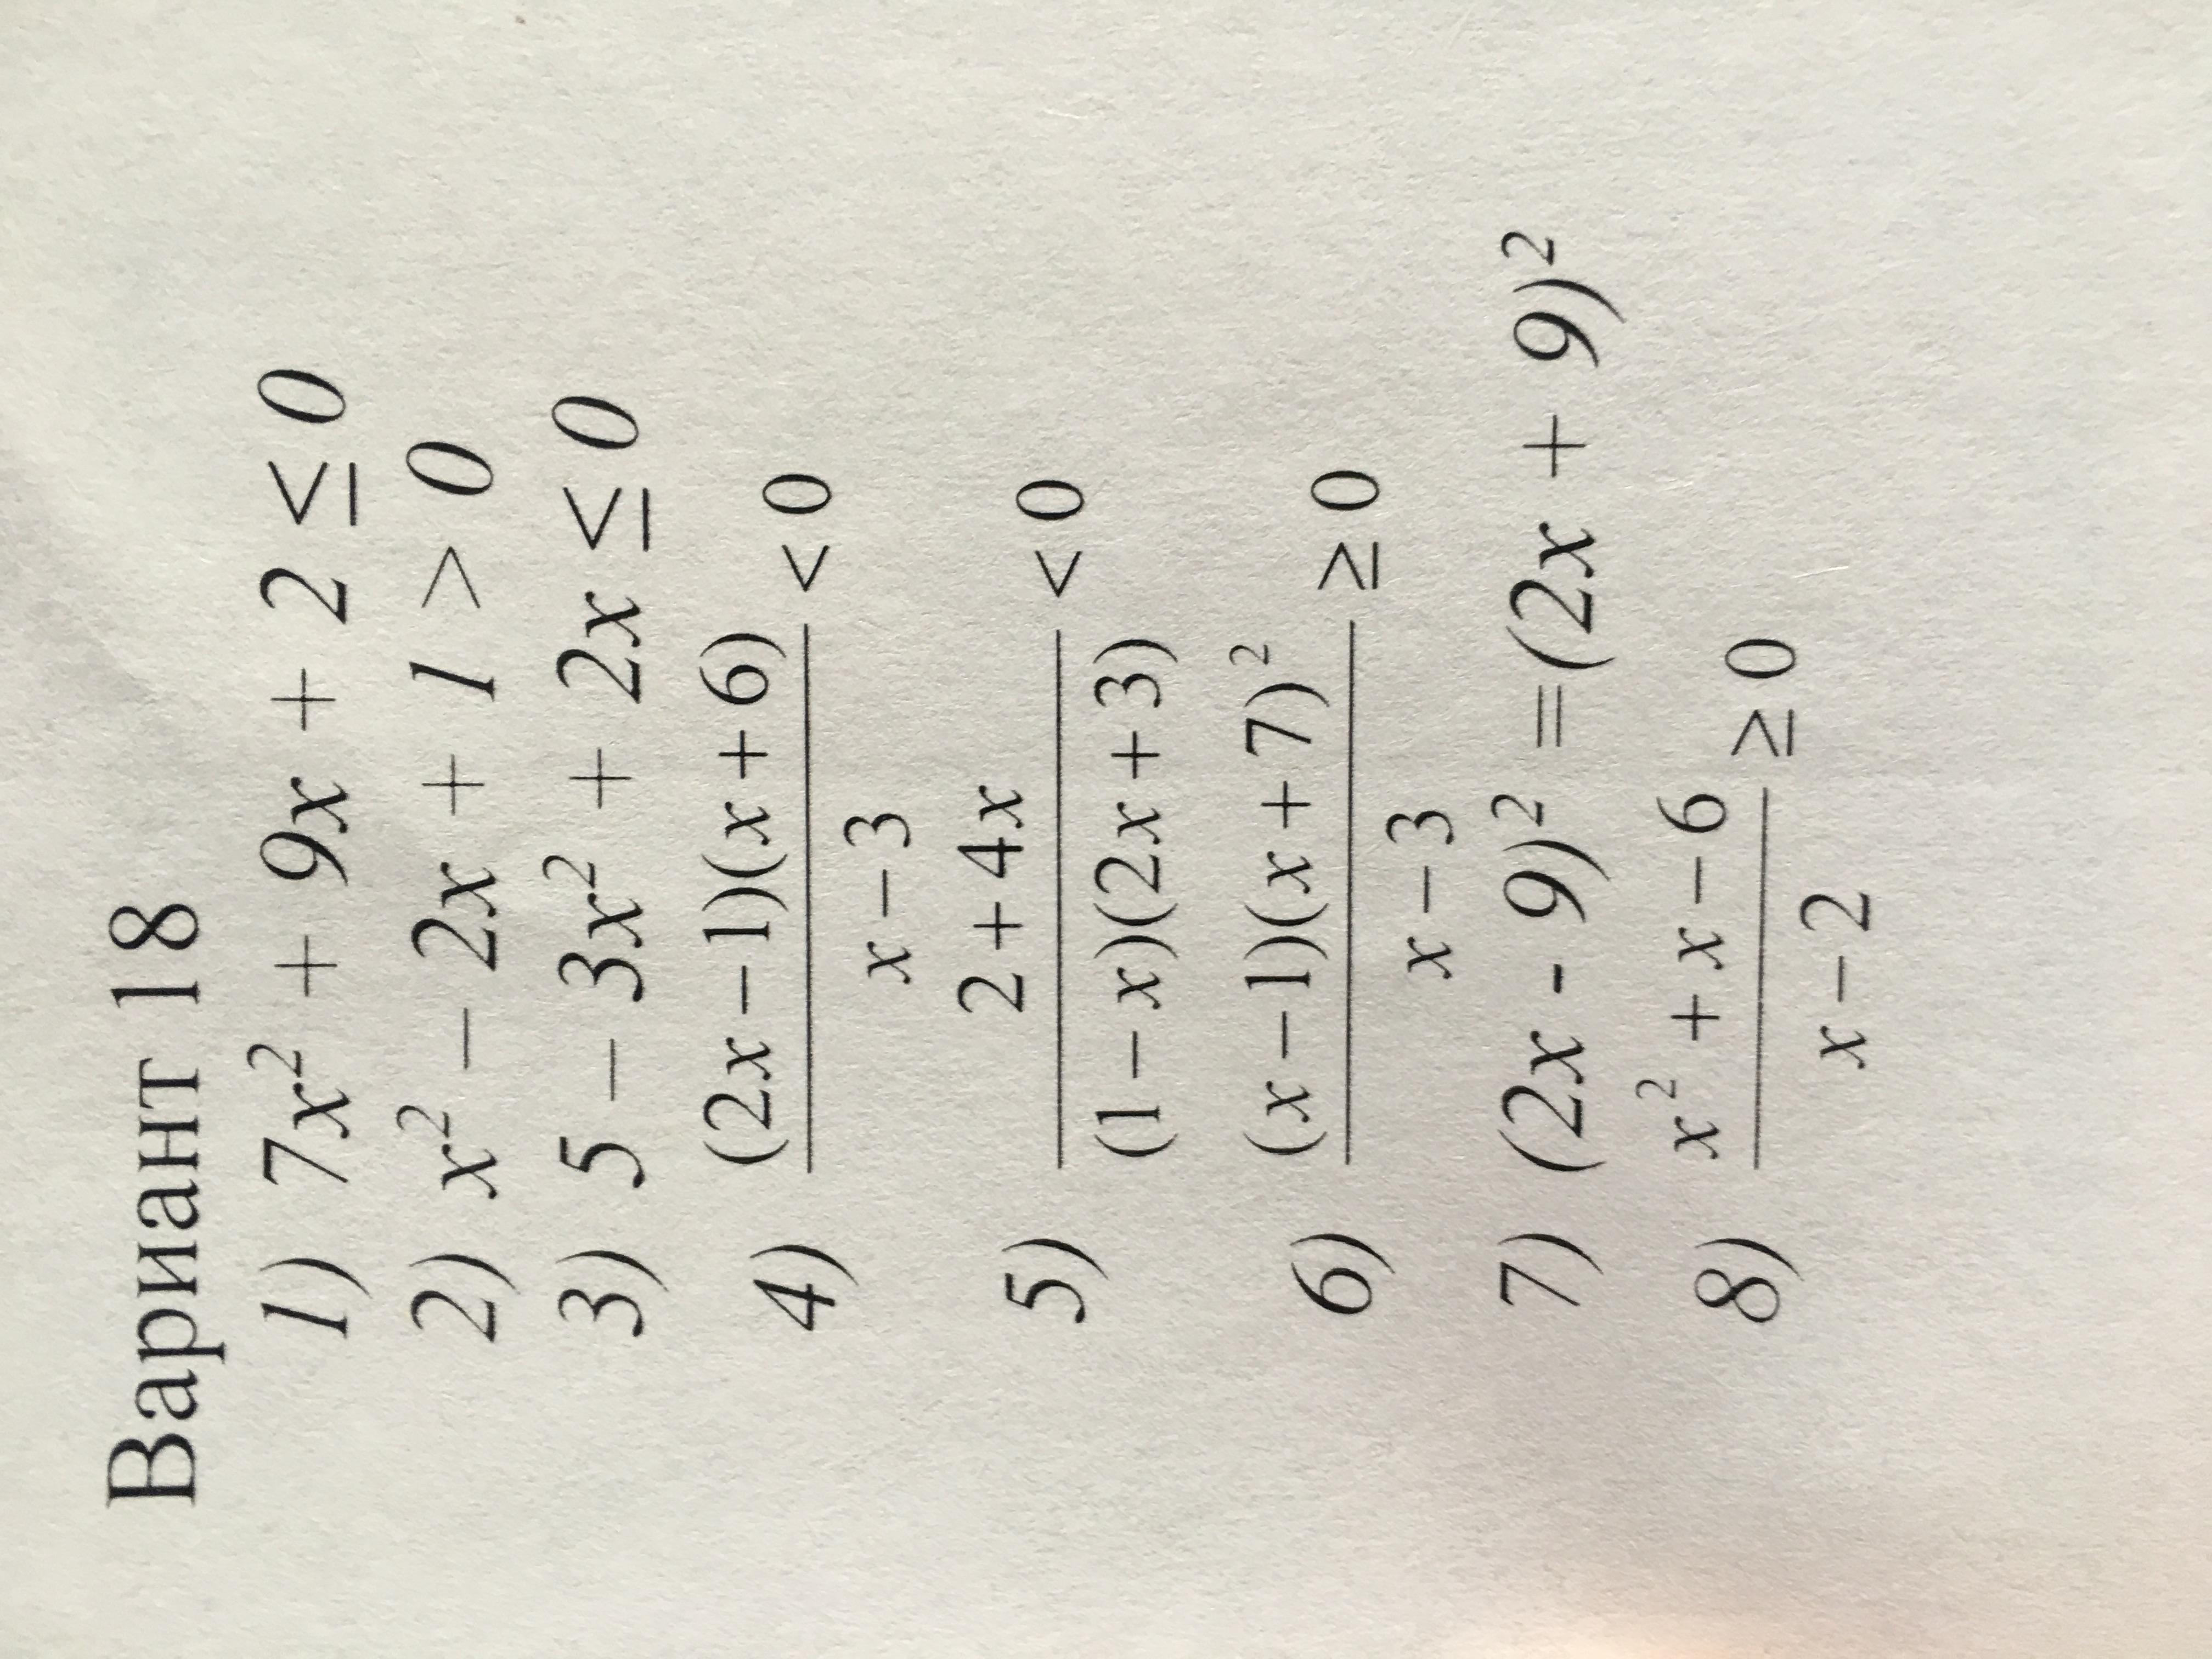 Вариант 18
1) 7x² + 9x + 2 ≤ 0
2) x² – 2x + 1 > 0
3) 5 – 3x² + 2x ≤ 0
4) (2x – 1)(x + 6) / x – 3 < 0
5) 2 + 4x / (1 – x)(2x + 3) < 0
6) (x – 1)(x + 7)² / x – 3 ≥ 0
7) (2x - 9)² =(2x + 9)²
8) x² + x – 6 / x – 2 ≥ 0